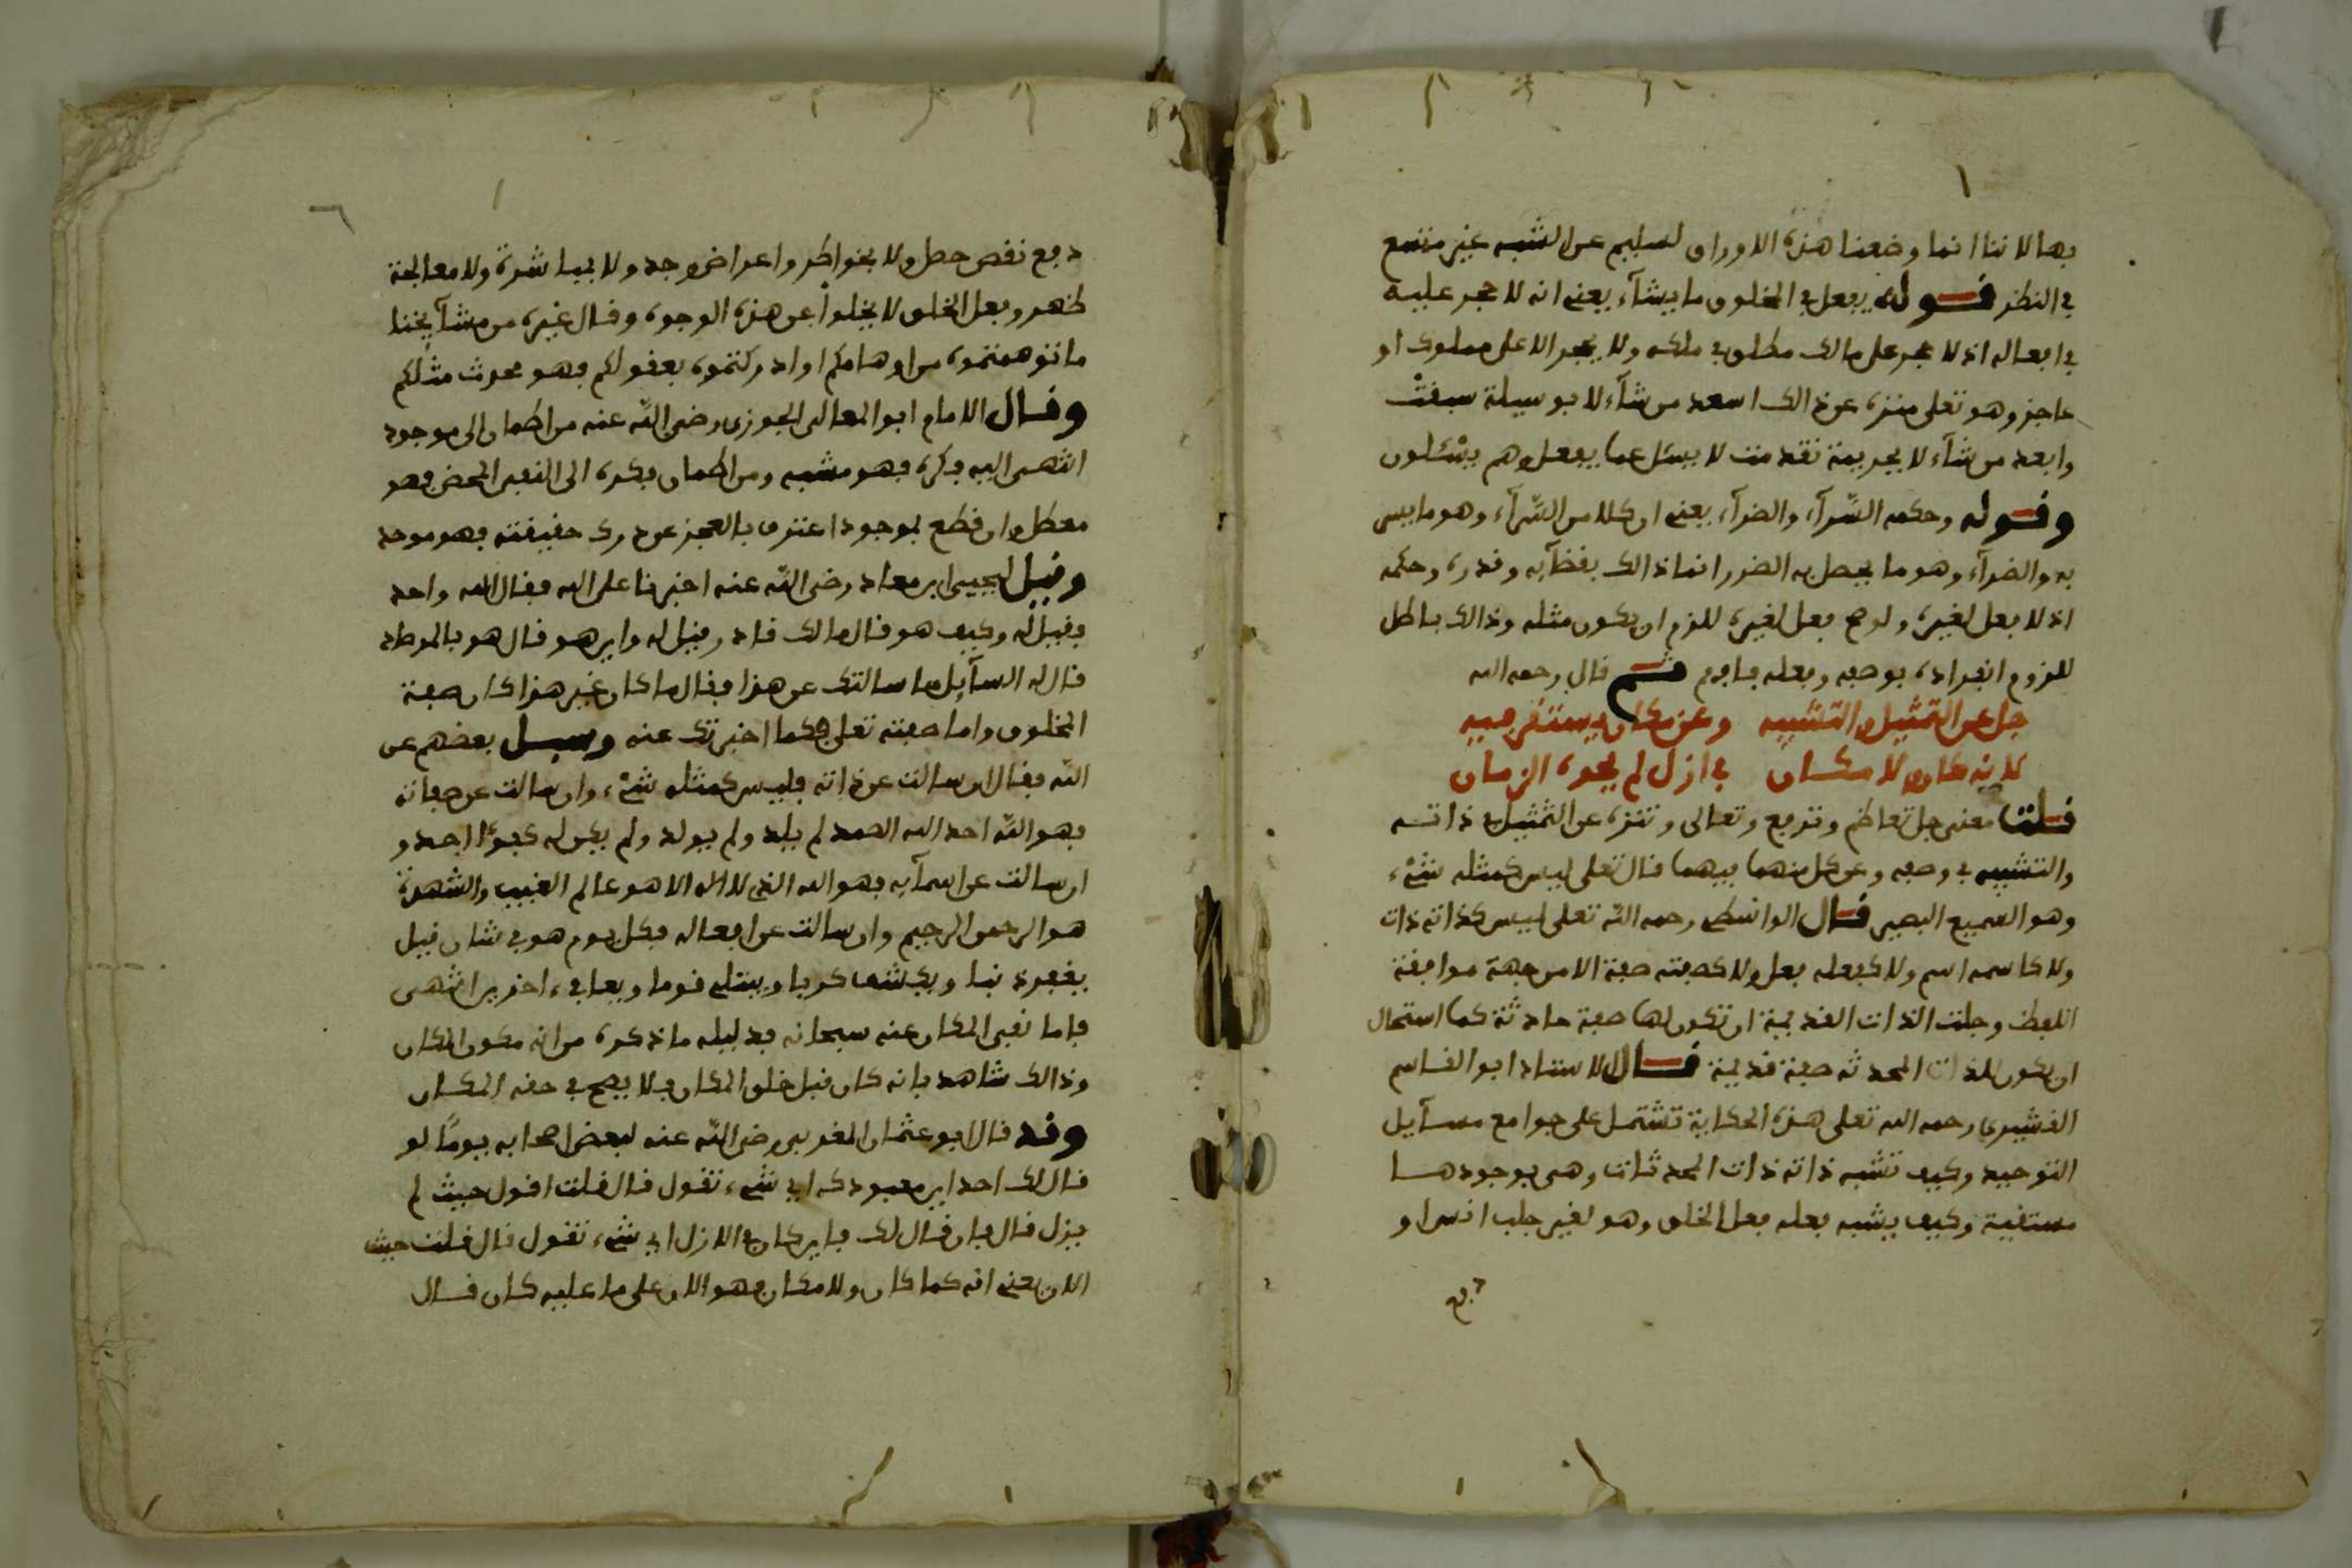 بها لاننا انما وضعنا هذه الاوراق لسليم عن الشبه غير متسع
في النظر قوله يفعل في المخلوق ما يشاء يعني انه لا حجر عليه
في افعاله اذ لا حجر على مالك مطلق في ملكه ولا يحجر الا على مملوك او
عاجز وهو تعلى منزه عن ذالك اسعد من شاء لا بوسيلة سبقت
وابعد من شاء لا بجريمة تقدمت لا يسئل عما يفعل وهم يسئلون
وقوله وحكمه السراء والضراء يعني ان كلا من السراء وهو ما يسر
به والضراء وهو ما يحصل به الضرر انما ذالك بقضايه وقدره وحكمه
اذ لا فعل لغيره ولو صح فعل لغيره للزم ان يكون مثله وذالك باطل
للزوم انفراده بوصفه وفعله فافهم ثم قال رحمه الله
جل عن التمثيل والتشبيه وعن مكان يستقر فيه
لانه كان ولا مكان في ازل لم يحوه الزمان
قلت معنى جل تعاظم وترفع وتعالى وتنزه عن التمثيل في ذاته
والتشبيه في وصفه وعن كل منهما فيهما قال تعلى ليس كمثله شيء
وهو السميع البصير قال الواسطي رحمه الله تعلى ليس كذاته ذات
ولا كاسمه اسم ولا كفعله فعل ولا كصفته صفة الا من جهة موافقة
اللفظ وجلت الذات القديمة ان تكون لها صفة حادثة كما استحال
ان يكون للذات المحدثه صفة قديمة قال الاستاذ ابو القاسم
القشيري رحمه الله تعلى هذه الحكاية تشتمل على جوامع مسايل
التوحيد وكيف تشبه ذاته ذات المحدثات وهي بوجودها
مستغنية وكيف يشبه فعله فعل الخلق وهو لغير جلب انس او
دفع
دفع نقص حصل ولا بخواطر واعراض وجد ولا بمباشرة ولا معالجة
ظهر وفعل الخلق لا يخلوا عن هذه الوجوه وقال غيره من مشايخنا
ما توهمتموه من اوهامكم او ادركتموه بعقولكم فهو محدث مثلكم
وقال الامام ابو المعالي الجوزي رضي الله عنه من اطمان الى موجود
انتهى اليه فكره فهو مشبه ومن اطمان بفكره الى النفي المحض فهو
معطل وان قطع بموجود اعترف بالعجز عن درك حقيقته فهو موحد
وقيل ليحيى ابن معاذ رضي الله عنه اخبرنا على الله فقال الله واحد
فقيل له وكيف هو قال مالك قادر فقيل له واين هو قال هو بالمرصاد
قال له السايل ما سالتك عن هذا فقال ما كان غير هذا كان صفة
المخلوق واما صفته تعلى فكما اخبرتك عنه وسيل بعضهم عن
الله فقال ان سالت عن ذاته فليس كمثله شيء وان سالت عن صفاته
فهو الله احد الله الصمد لم يلد ولم يولد ولم يكن له كفؤا احد و
ان سالت عن اسمايه فهو الله الذي لا اله الا هو عالم الغيب والشهدة
هو الرحمن الرحيم وان سالت عن افعاله فكل يوم هو في شان قيل
يغفر ذنبا ويكشف كربا ويبتلي قوما ويعافي اخرين انتهى
فاما نفي المكان عنه سبحانه فدليله ما ذكره من انه مكون المكان
وذالك شاهد بانه كان قبل خلق المكان فلا يصح في حقه المكان
وقد قال ابو عثمان المغربي رضي الله عنه لبعض اصحابه يوما لو
قال لك احد اين معبودك اي شيء تقول قال قلت اقول حيث لم
يزل قال فان قال لك فاين كان في الازل اي شيء تقول قال قلت حيث
الان يعني انه كما كان ولا مكان فهو الان على ما عليه كان قال